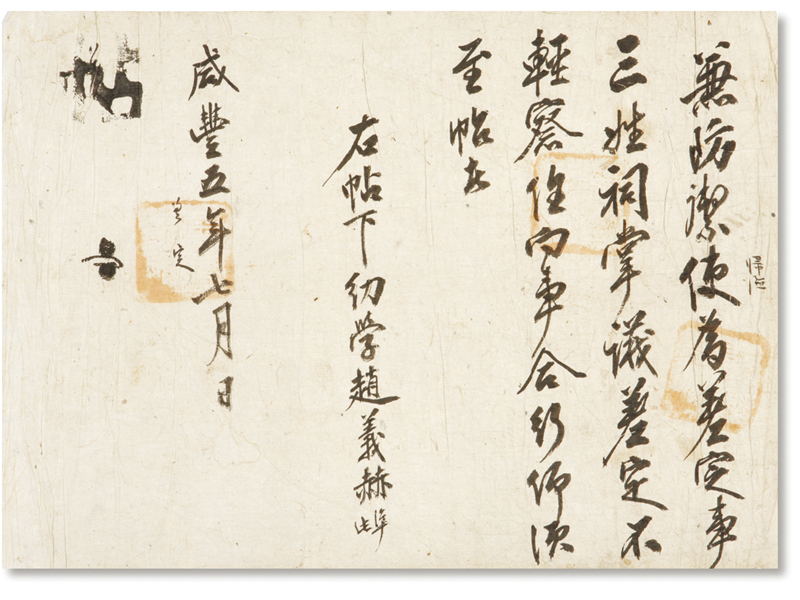 兼防禦使爲差定事
三姓祠掌議差定不
輕察任向事合行仰須
至帖者
右帖下幼學趙義赫 此準
咸豐五年七月 日
差定
帖